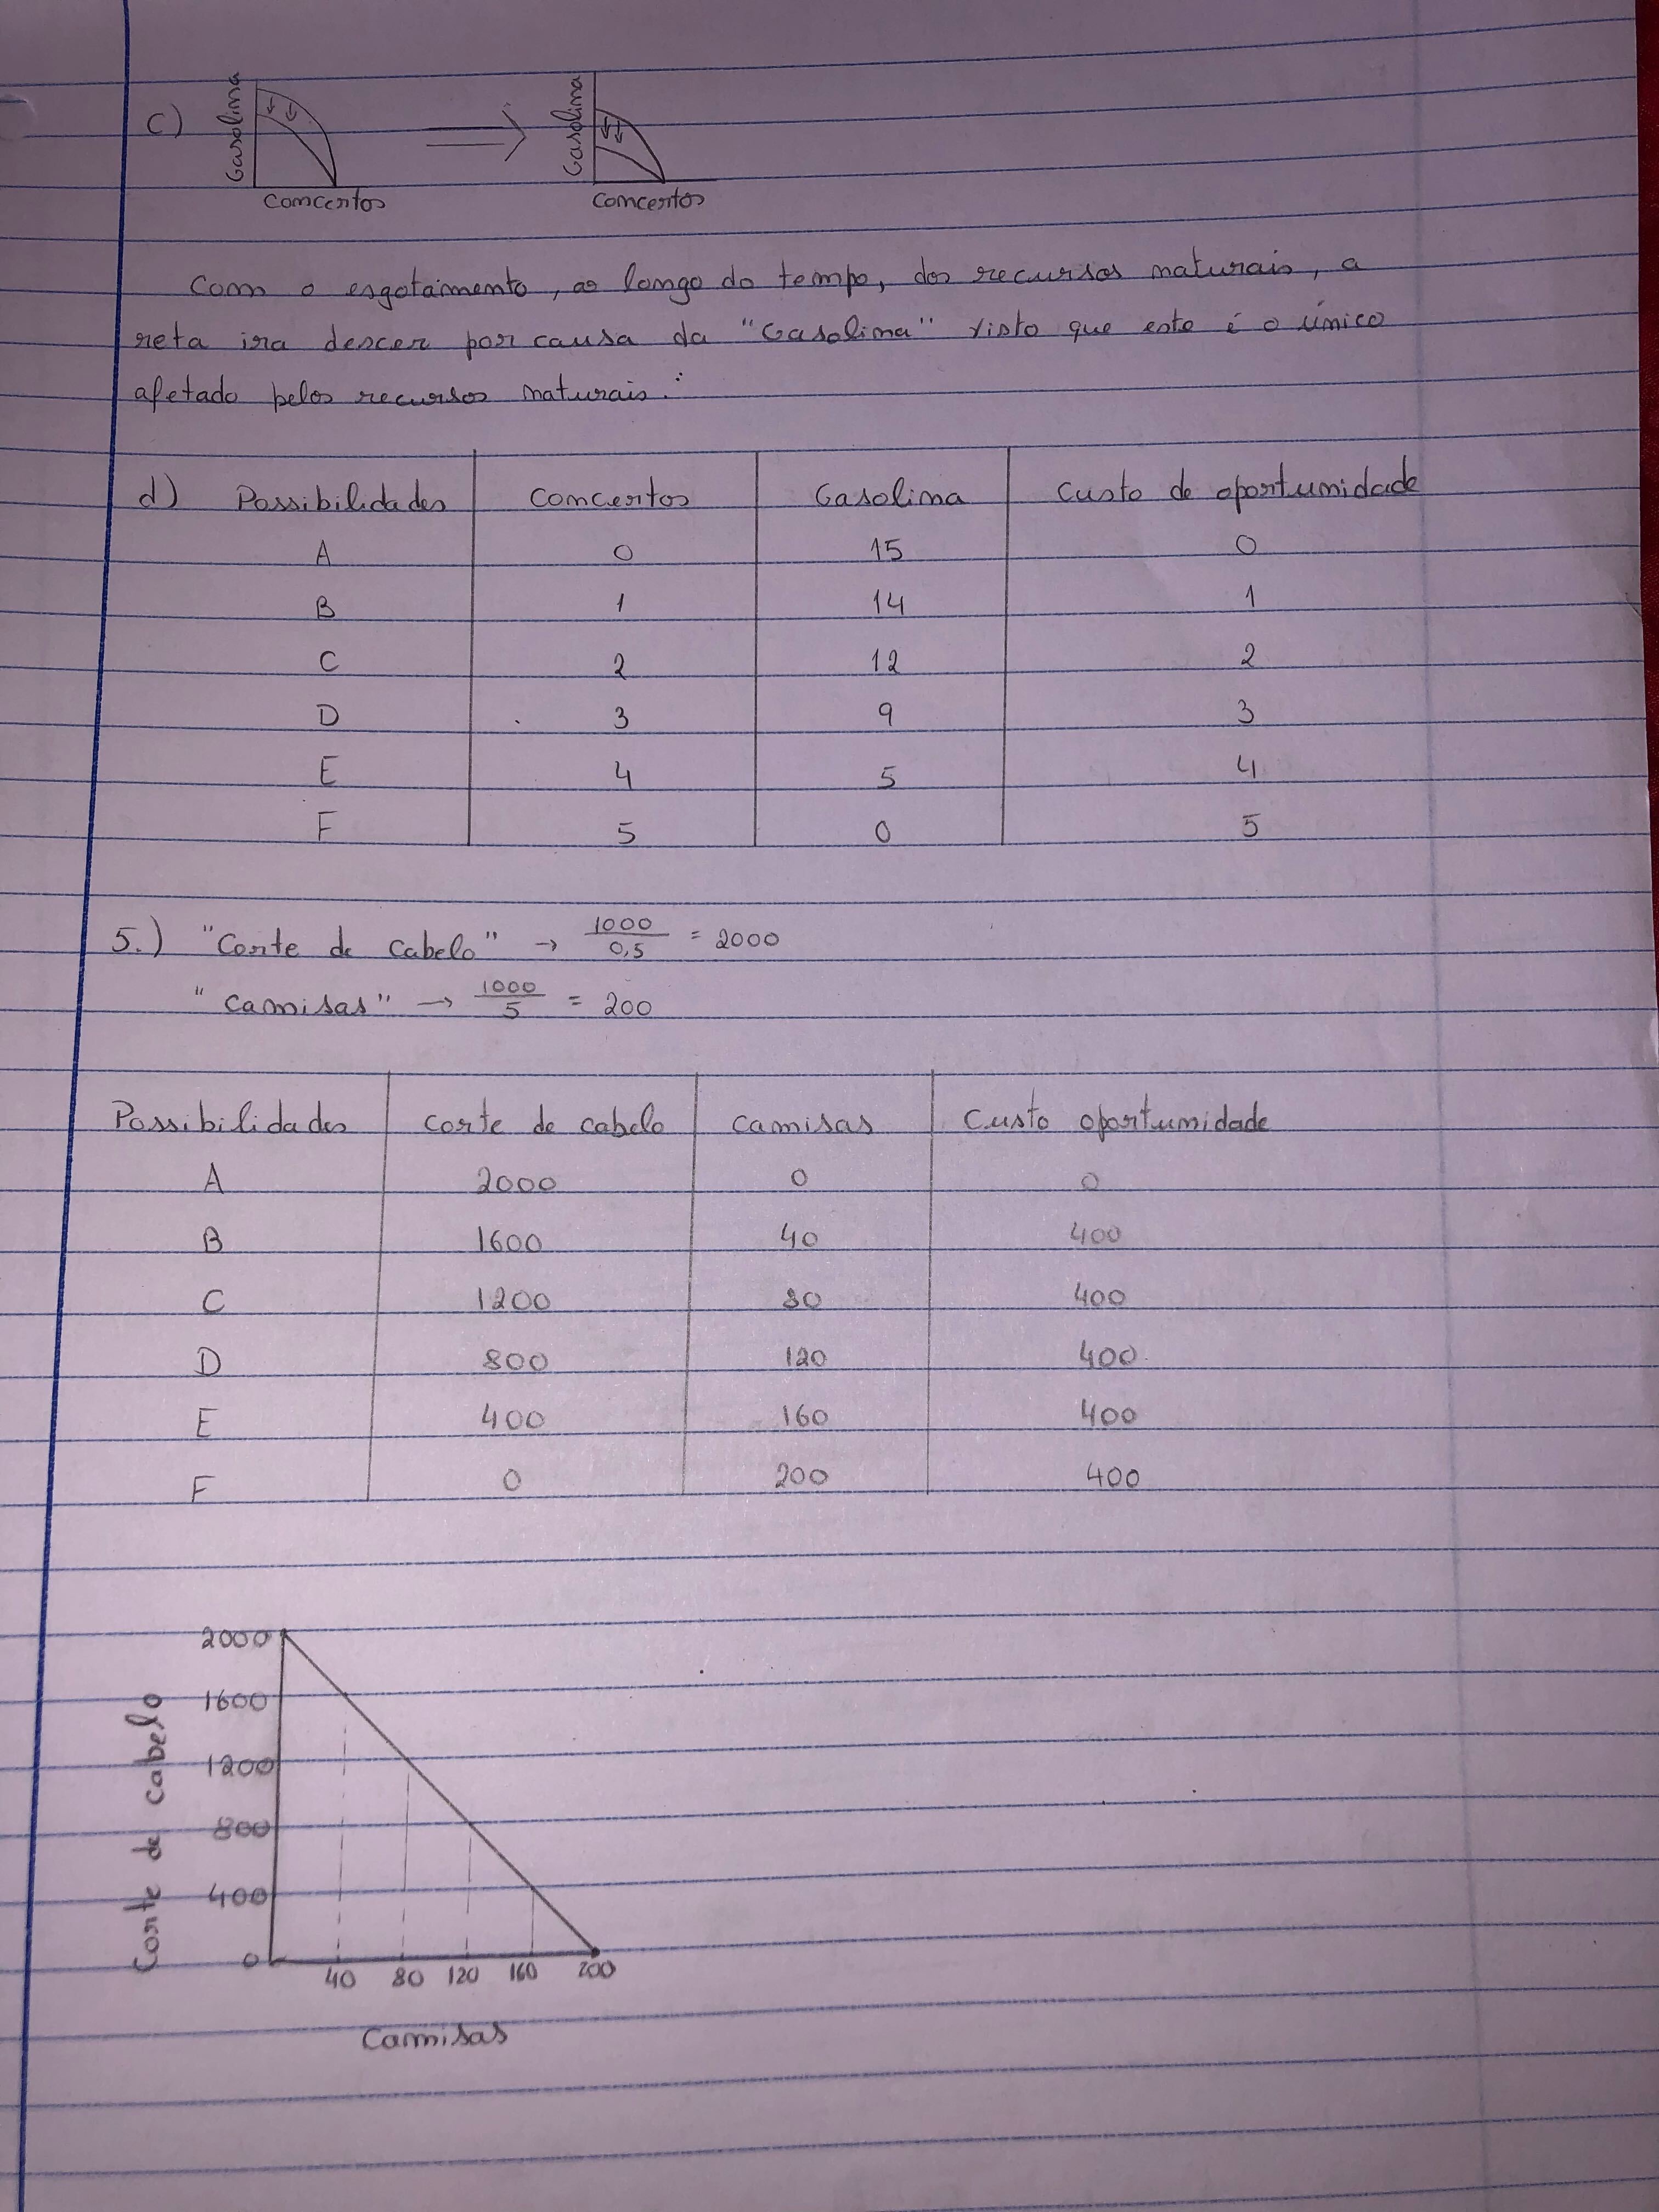 c) Gasolina Gasolina
Concertos Concertos
Com o esgotamento, ao longo do tempo, dos recursos naturais, a
reta ira descer por causa da "Gasolina" visto que este é o único
afetado pelos recursos naturais.
d) Possibilidades Concertos Gasolina Custo de oportunidade
A 0 15 0
B 1 14 1
C 2 12 2
D 3 9 3
E 4 5 4
F 5 0 5
5.) "Corte de cabelo" → 1000/0,5 = 2000
"Camisas" → 1000/5 = 200
Possibilidades Corte de cabelo Camisas Custo oportunidade
A 2000 0 0
B 1600 40 400
C 1200 80 400
D 800 120 400
E 400 160 400
F 0 200 400
Corte de cabelo
2000
1600
1200
800
400
0
40 80 120 160 200
Camisas